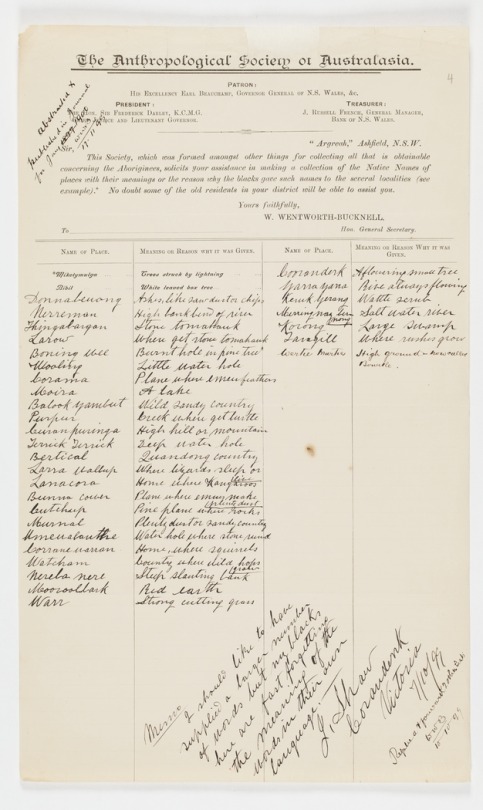 The Anthropological Society of Australasia.
4
PATRON:
HIS EXCELLENCY EARL BEAUCHAMP, GOVERNOR GENERAL OF N.S. WALES, &c.
PRESIDENT: TREASURER:
SIR FREDERICK DARLEY, K.C.M.G. J. RUSSELL FRENCH, GENERAL MANAGER,
AND LIEUTENANT GOVERNOR. BANK OF N.S. WALES.
Abstracted &
Sir, "Argyook," Ashfield, N.S.W.
This Society, which was formed amongst other things for collecting all that is obtainable
concerning the Aborigines, solicits your assistance in making a collection of the Native Names of
places with their meanings or the reason why the blacks gave such names to the several localities (see
example)." No doubt some of the old residents in your district will be able to assist you.
Yours faithfully,
W. WENTWORTH-BUCKNELL,
To Hon. General Secretary.
NAME OF PLACE. MEANING OR REASON WHY IT WAS GIVEN.
"Mikelymulga Trees struck by lightning
Bibil White leaved box tree
Donnabewong Ashes, like saw dust or chips
Nerreman High bank bend of river
Thingabargan Stone tomahawk
Larow Where get stone tomahawk
Boning wee Burnt hole in pine tree
Wooling Little water hole
Corama Plane where emeu feathers
Moira A lake
Balook yambut Wild sandy country
Purpur Creek where get turtle
Curanpuringa High hill or mountain
Terrick Terrick Deep water hole
Bertical Quandong country
Larra wallup Where lizards sleep or
Lanacora Home where Kangaroos
Bunna couer Plane where emeus make
Cutchup Pine plane where rocks
plenty dust
Murnal Plenty dust or sandy country
Water hole where stone
Corrane warran Home, where squirrels
Watcham Country where wild hops
Nerebs nere Steep slanting bank
Mooroolbark Red earth
Warr Strong cutting grass
NAME OF PLACE. MEANING OR REASON WHY IT WAS GIVEN.
Coranderk A flowering musk tree
Yarra yana River always flowing
Wattle scrub
Salt water river
Korong Large swamp
Taragill Where rushes grow
High ground
Memo
I should like to have
supplied a larger number
of words but my blacks
here are fast forgetting
the meaning of the
words in their own
language.
J. Shaw
Coranderrk
Victoria
7/10/99